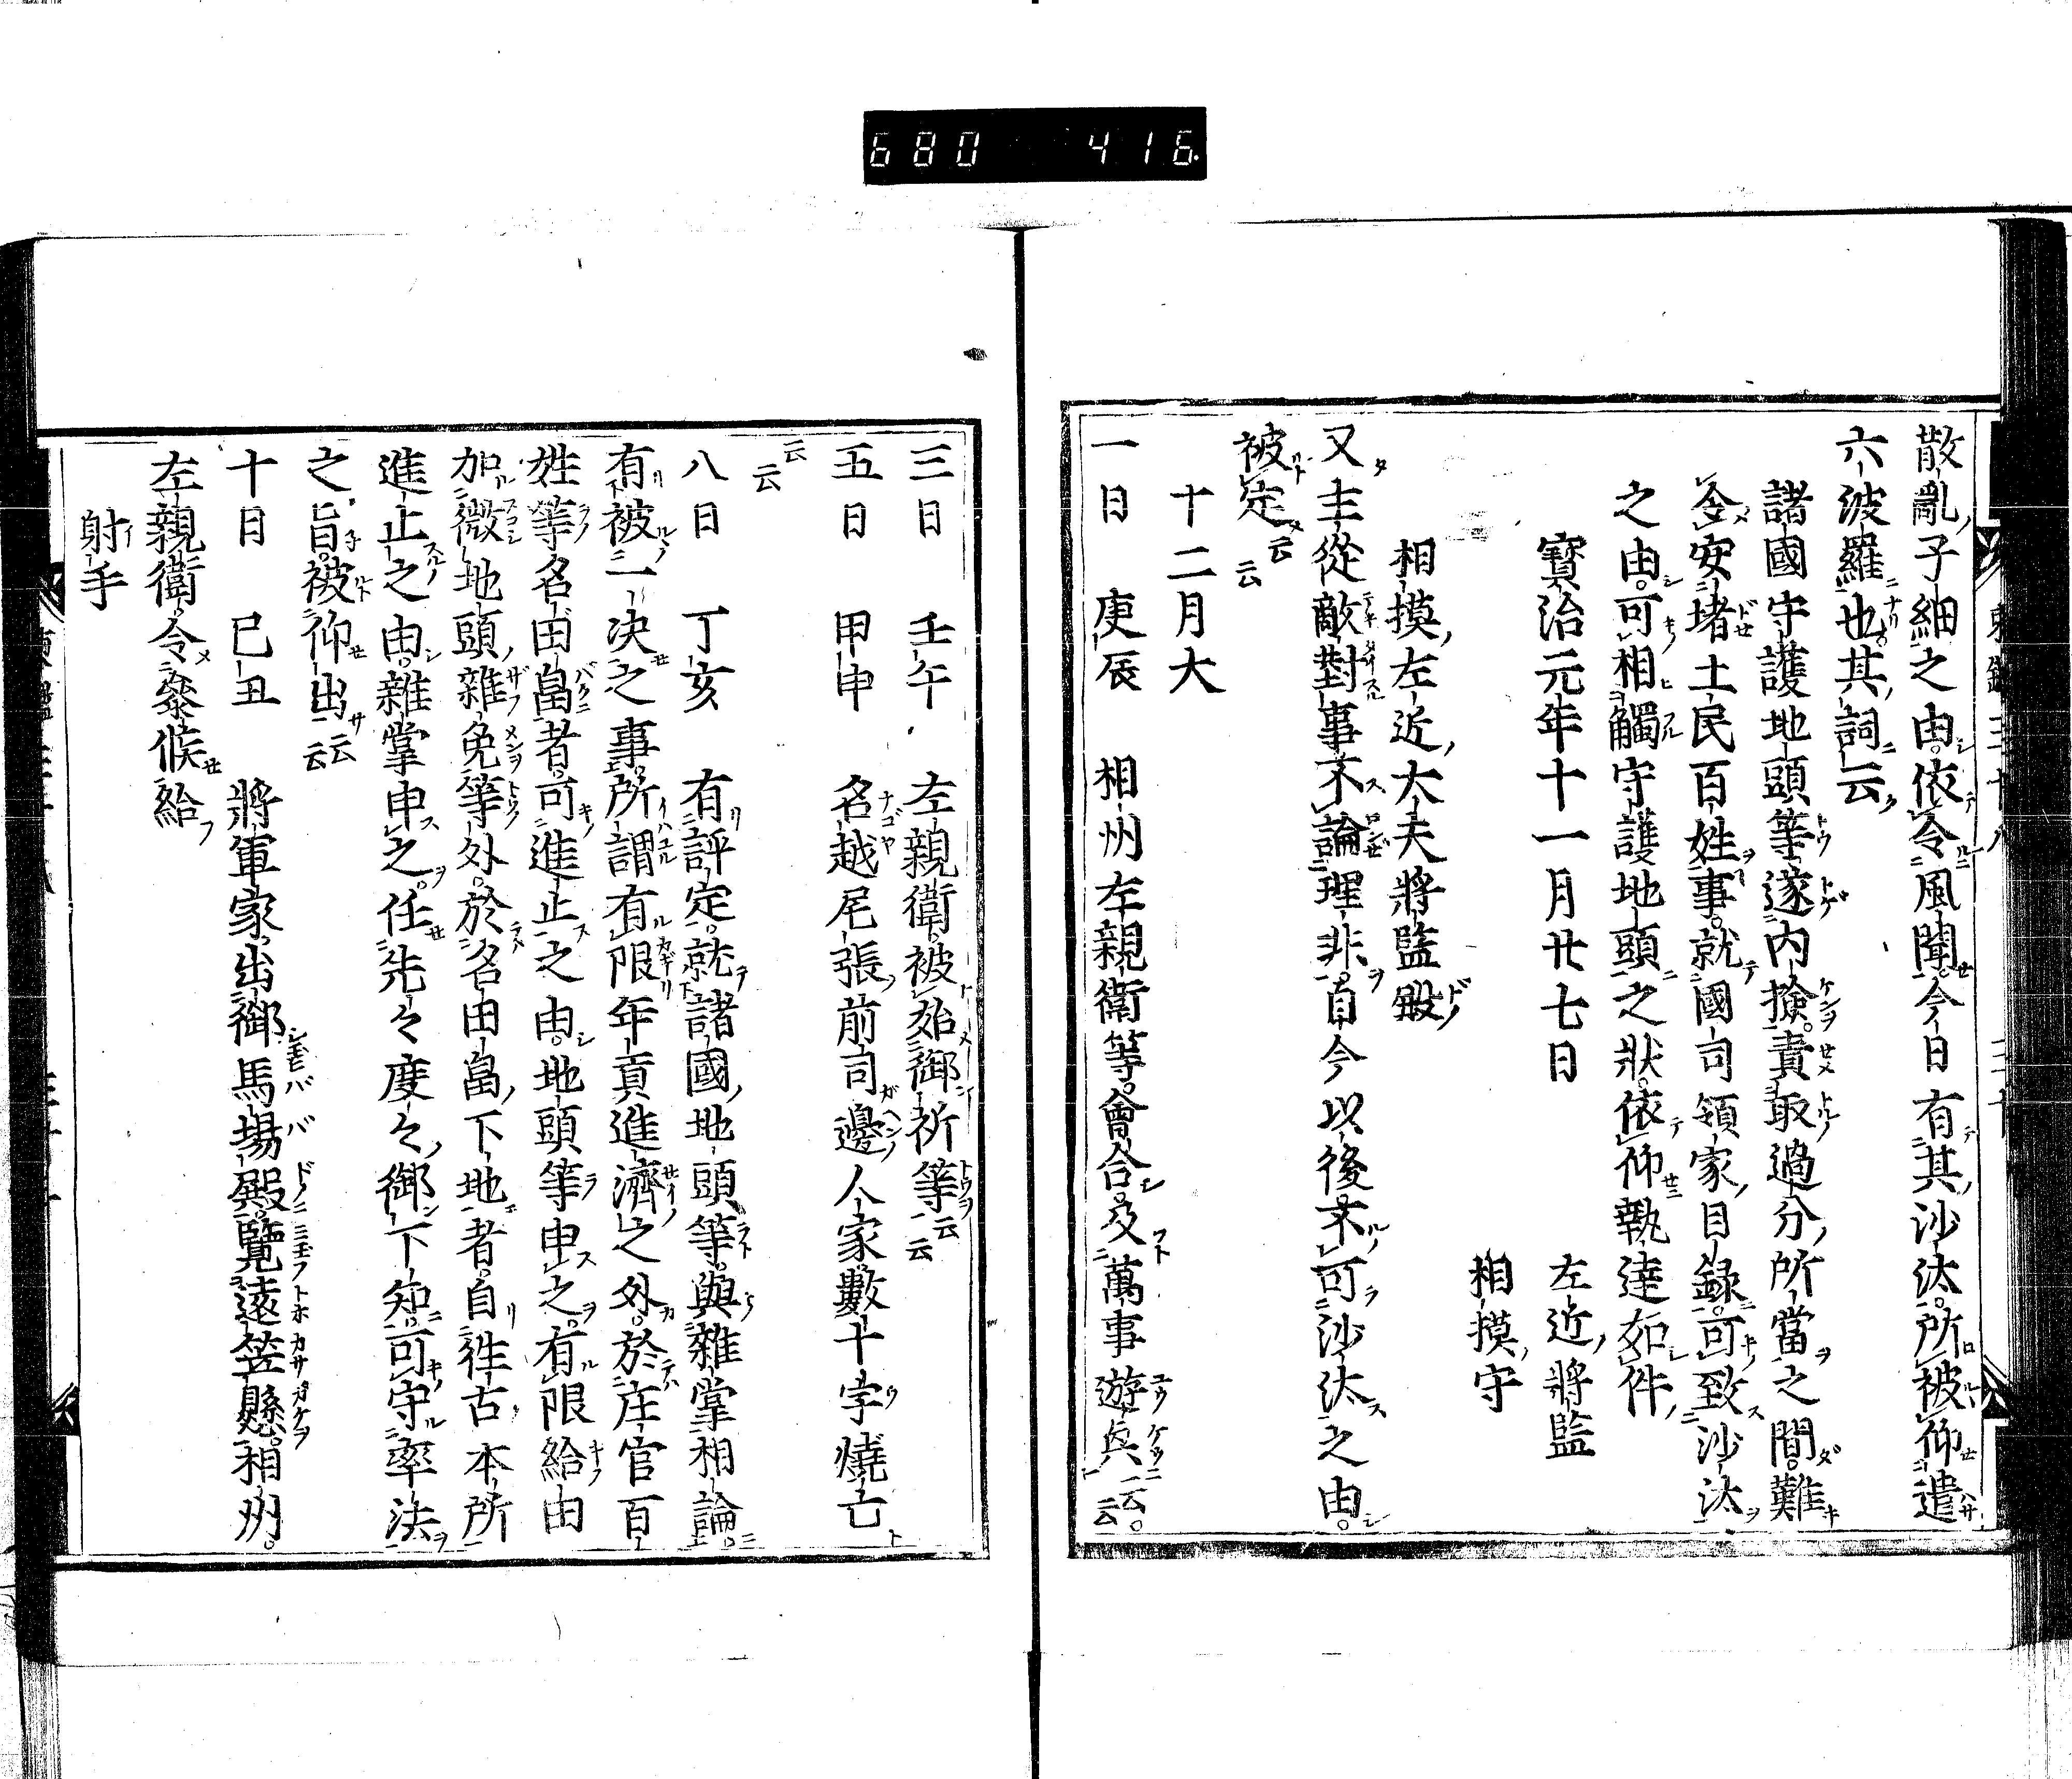 680 416
散亂ノ子細之由。依令風聞。今日有其沙汰。所被仰遣
六波羅也。其詞云
諸國守護地頭等遂内撿。責取過分所當之間。難
令安堵土民百姓事。就國司領家目録。可致沙汰
之由。可相觸守護地頭之狀。依仰執達如件
寳治元年十一月廿七日 左近將監
相摸守
相摸左近大夫將監殿
又主從敵對事不論理非。自今以後不可沙汰之由。
被定云云
十二月大
一日 庚辰 相州左親衛等。會合及萬事遊興云云。
三日 壬午 左親衛。被始御祈等云云
五日 甲申 名越尾張前司邊人家。數十宇燒亡
云云
八日 丁亥 有評定。就諸國地頭等。與雜掌相論。
有被一決之事。所謂有限年貢進濟之外。於庄官百
姓等名田畠者。可進止之由。地頭等申之。有限給田
加徴地頭雜免等外。於名田畠下地者。自往古本所
進止之由。雜掌申之。任先々度々御下知。可守率法
之旨。被仰出云云
十日 巳丑 將軍家出御馬塲殿。覽遠笠懸。相州。
左親衛令參候給
射手